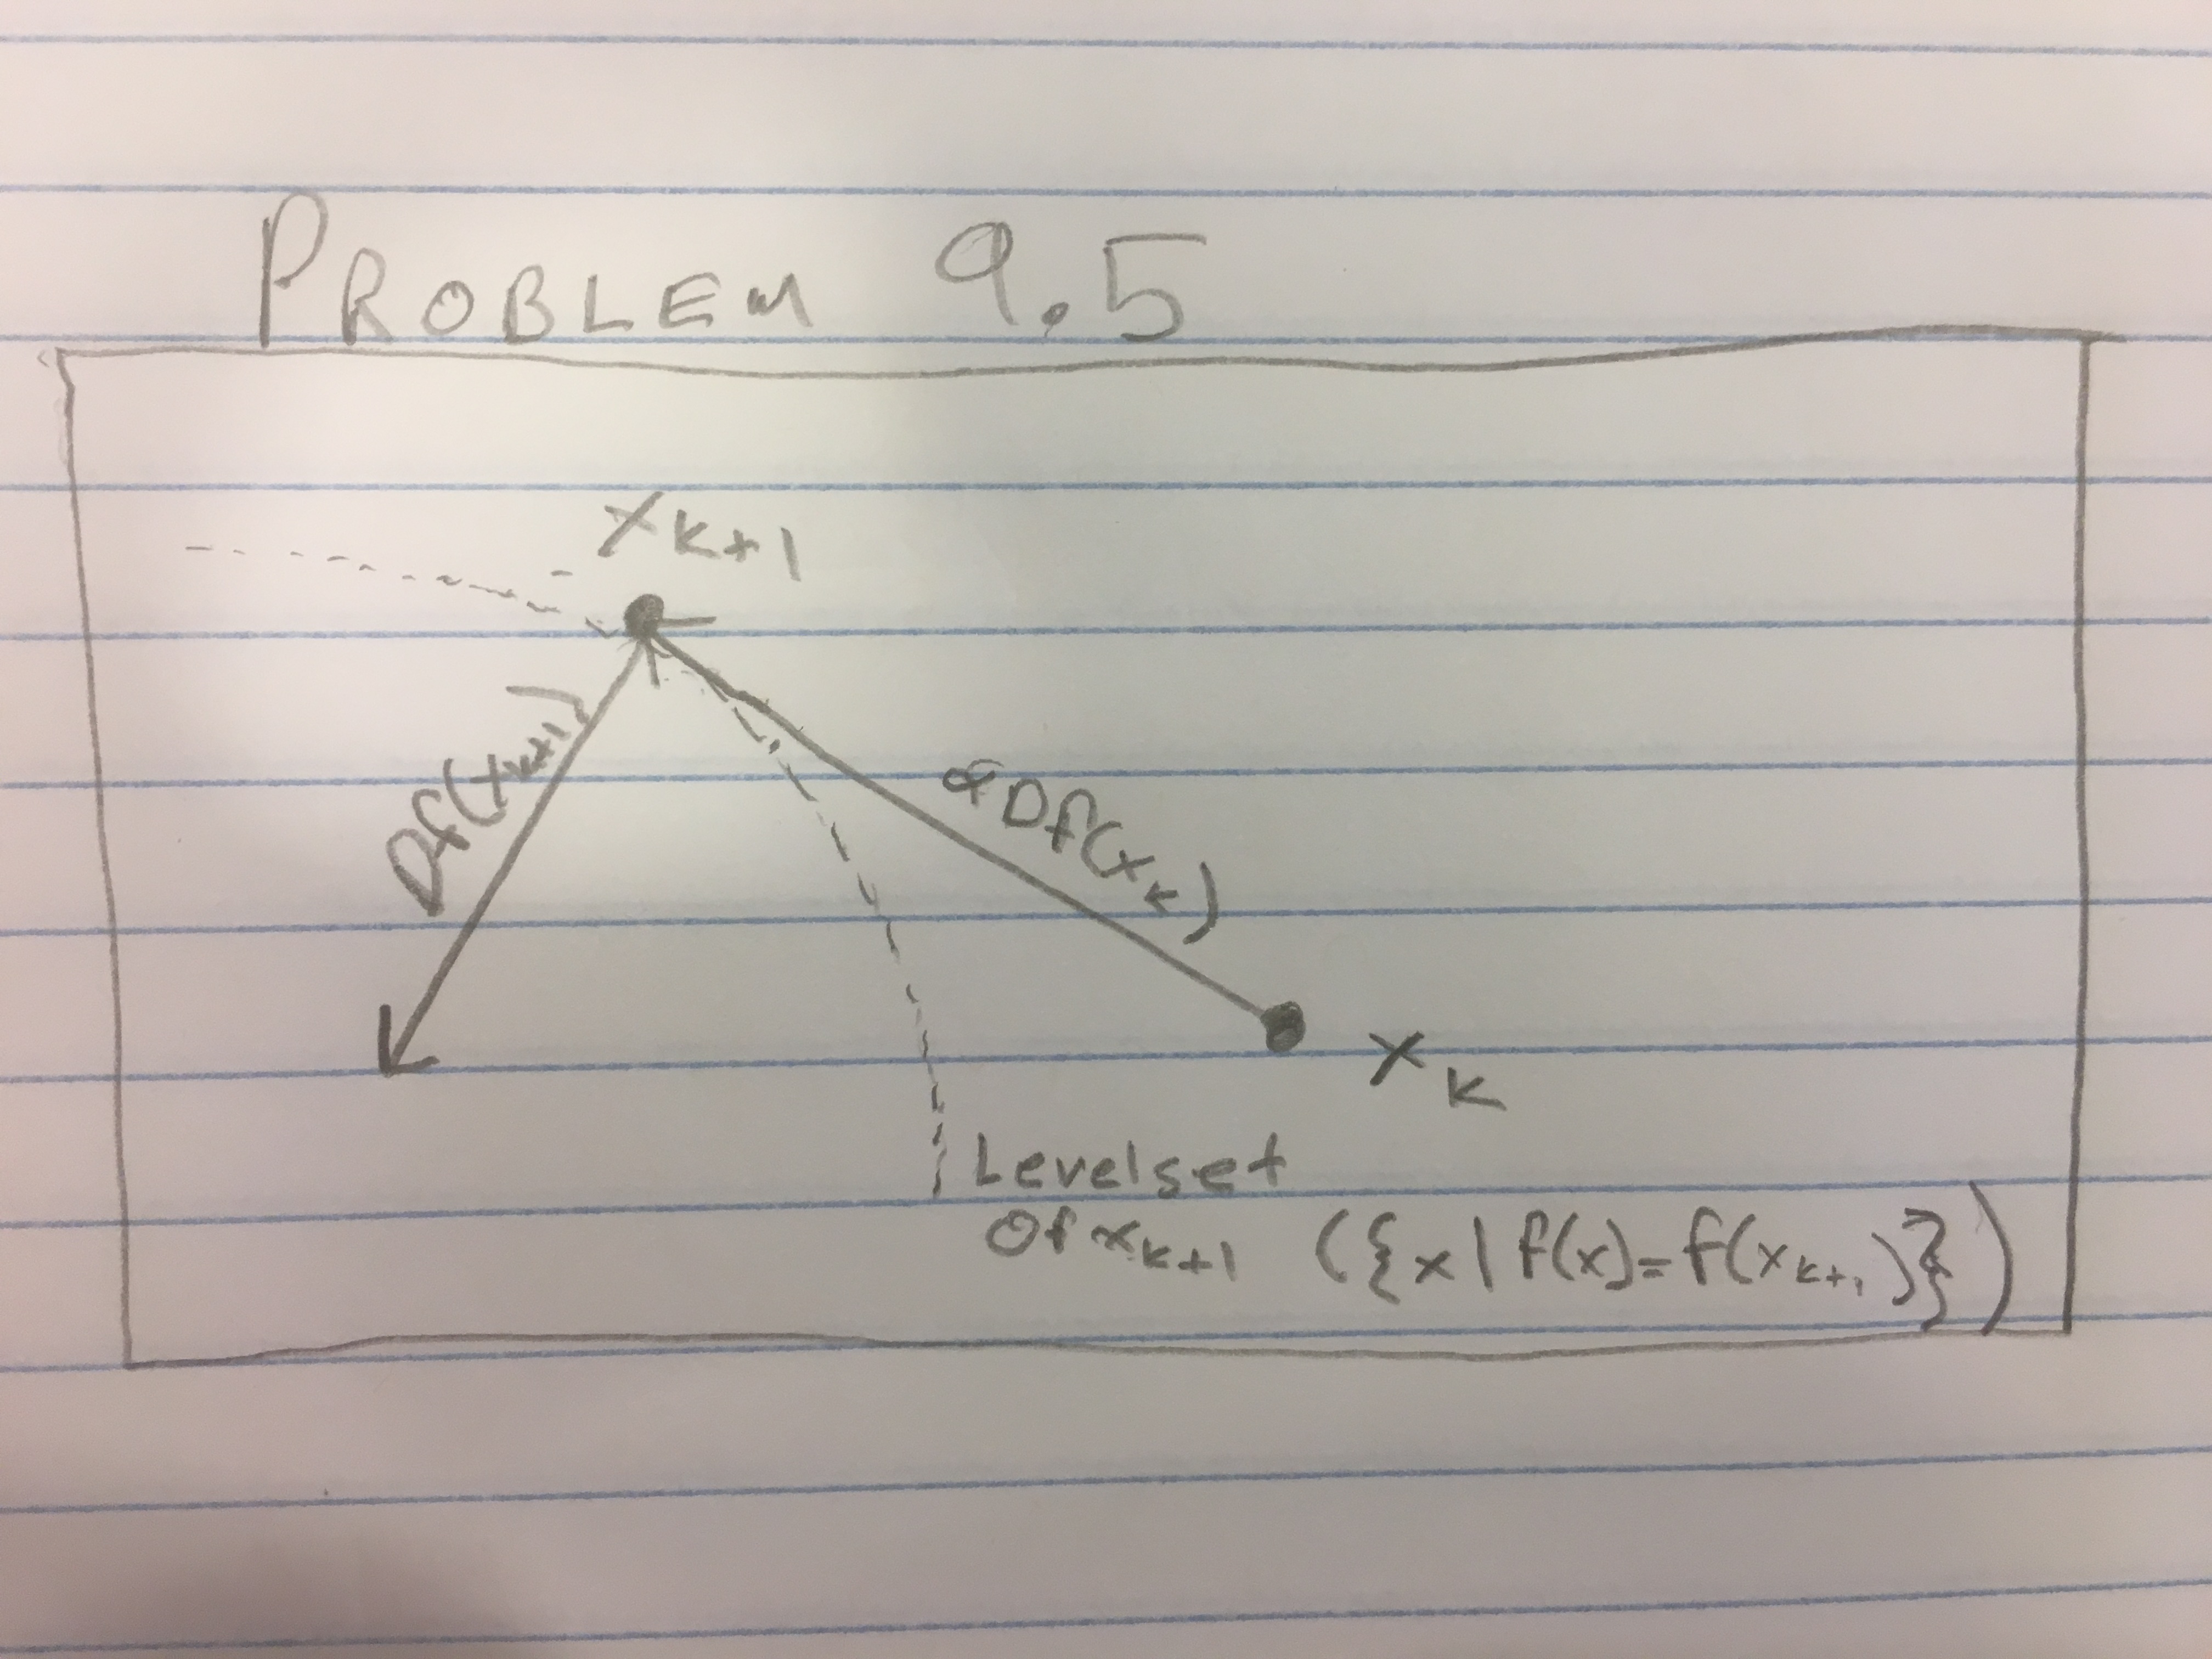 PROBLEM 9.5
x_{k+1}
Df(x_{k+1})
αDf(x_k)
x_k
Levelset
Of x_{k+1} ({x | f(x) = f(x_{k+1})})